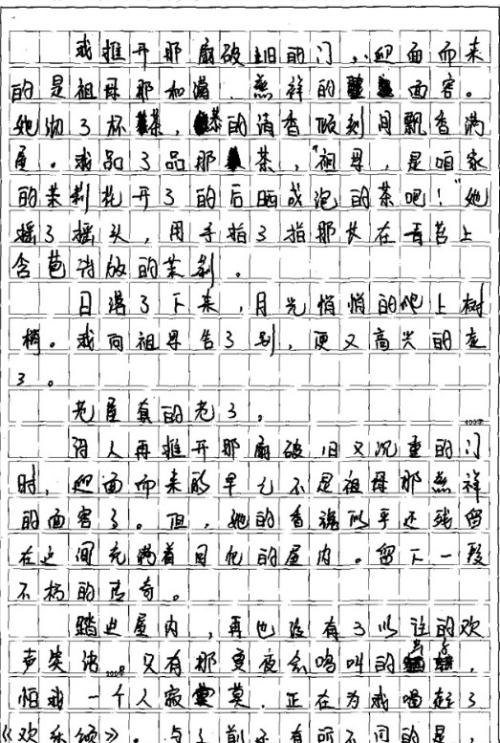 我推开那扇破旧的门，迎面而来
的是祖母那和蔼、慈祥的面容。
她沏了杯茶，茶的清香顷刻间飘香满
屋。我品了品那茶，"祖母，是咱家
的茉莉花开了的后晒成泡的茶吧！"她
摇了摇头，用手指了指那长在青苔上
含苞待放的茉莉。
日落了下来，月光悄悄的爬上树
梢。我向祖母告了别，便又高兴的走
了。
老屋真的老了。
没人再推开那扇破旧又沉重的门
时，迎面而来的早已不是祖母那慈祥
的面容了。但，她的香魂似乎还残留
在这间充满着回忆的屋内。留下一段
不朽的传奇。
踏进屋内，再也没有了以往的欢
声笑语，又有那更夜会鸣叫的
怕我一个人寂寞，正在为我唱起了
《欢乐颂》。与之前还有所不同的是，